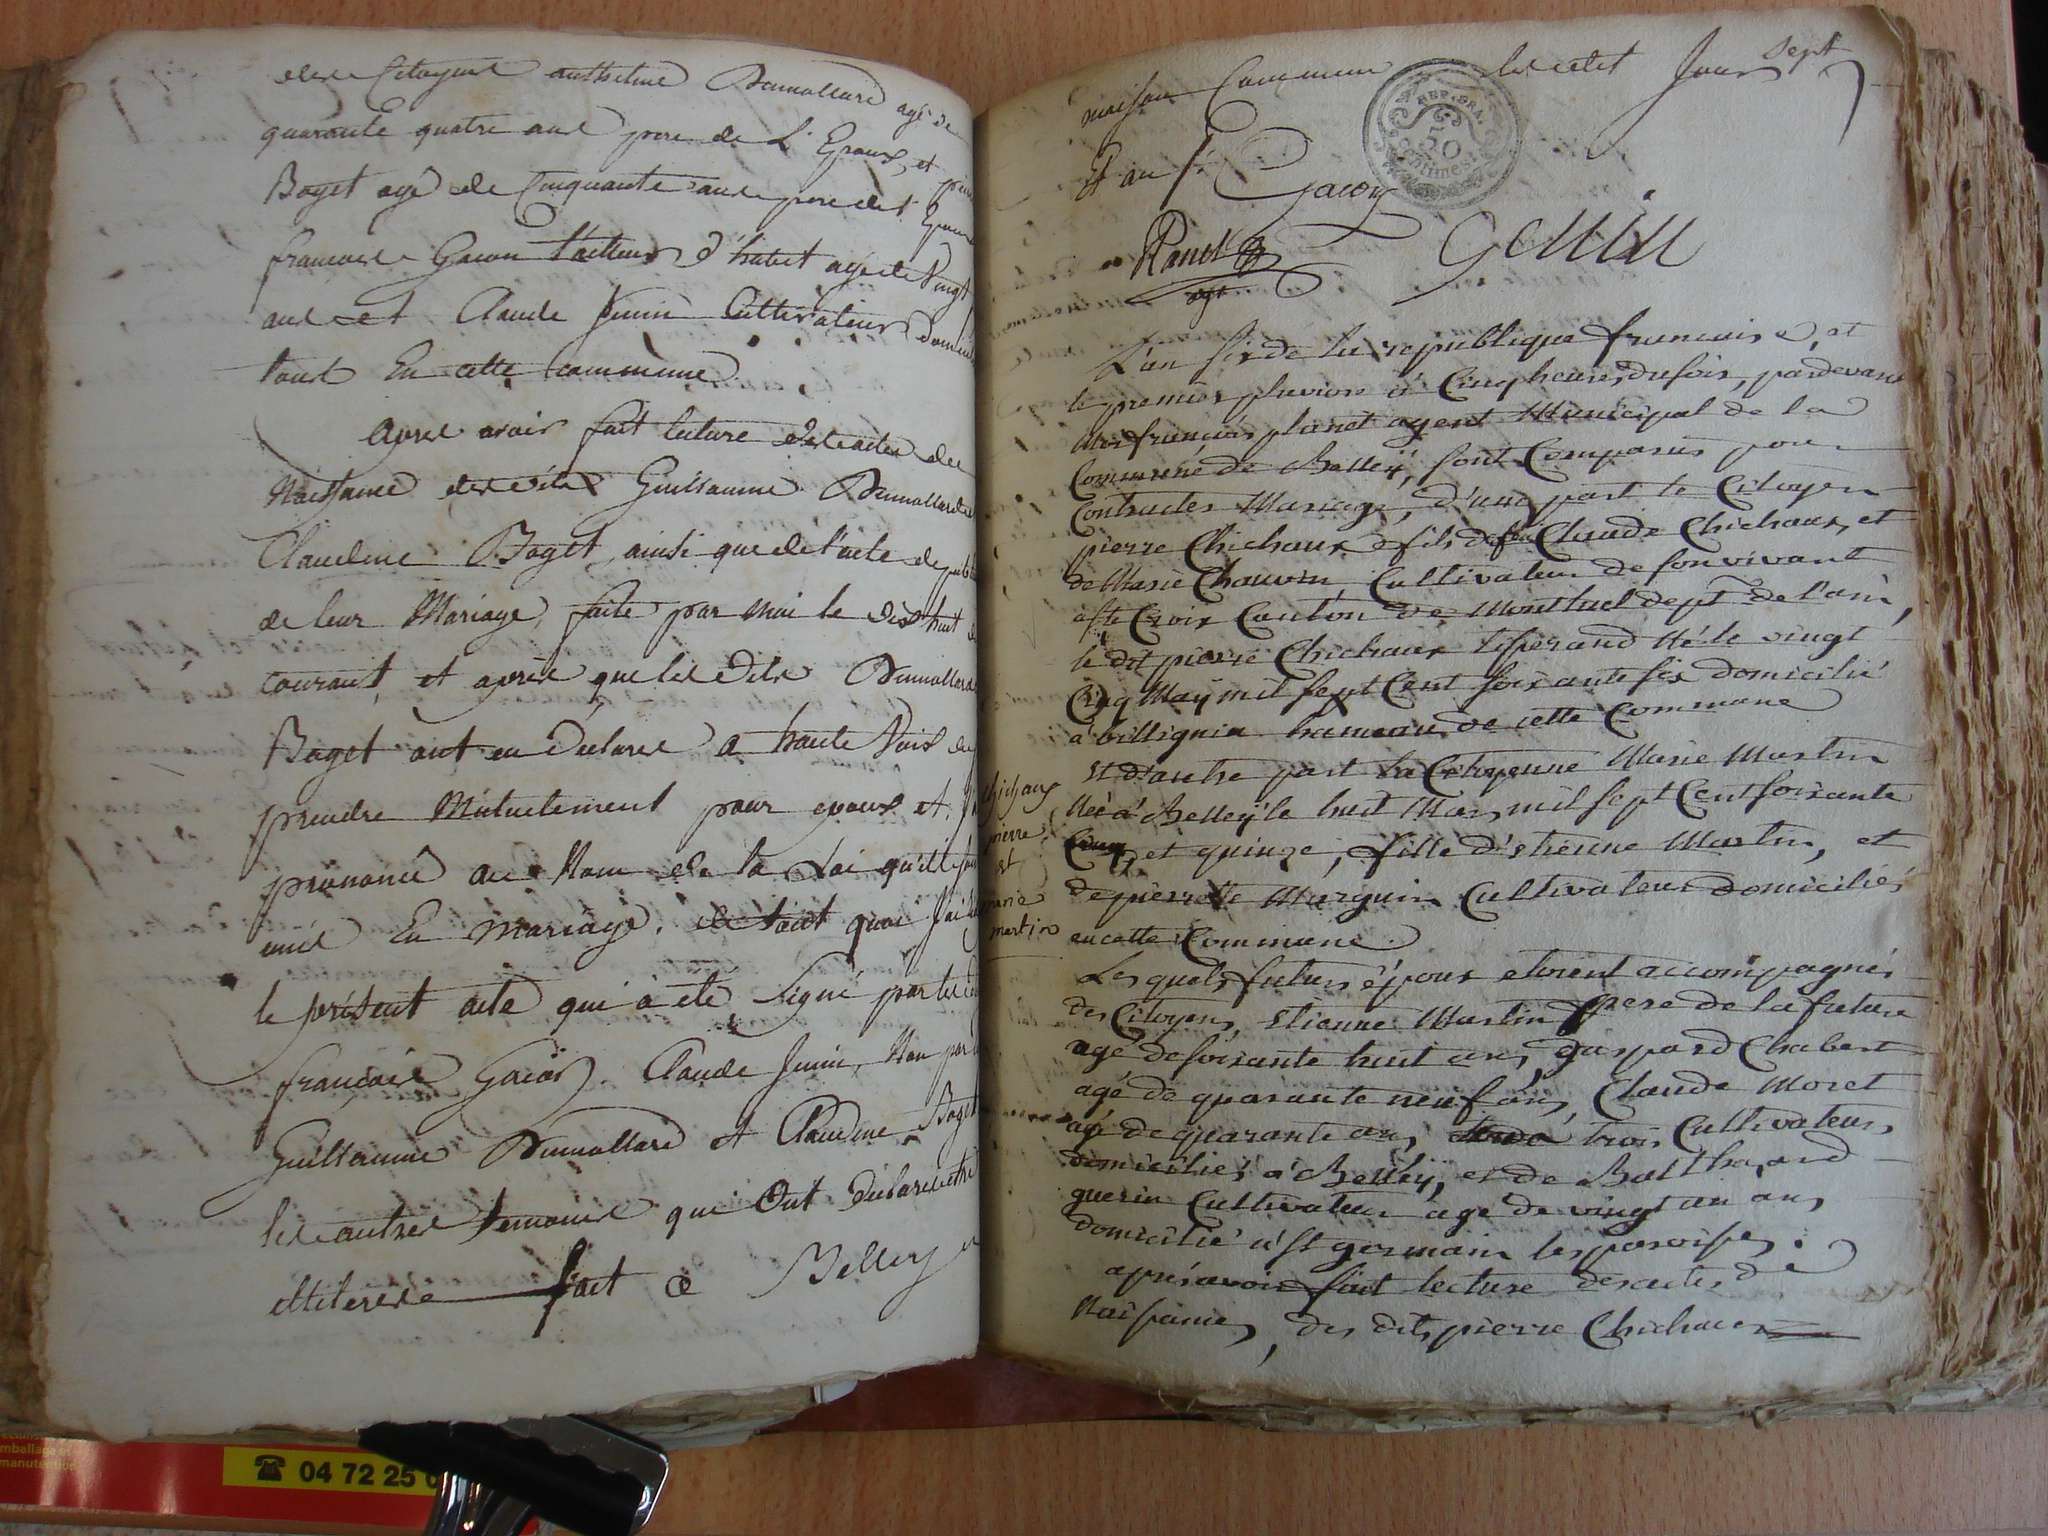 des Citoyens anthelme Dumollard agé de
quarante quatre ans pere de L'Epoux, et
Boget agé de Cinquante ans pere de l'Epouse
françois Gacon tailleur d'habit agé de Vingt
ans et Claude Jenin Cultivateur
tous En cette commune.
Apres avoir fait lecture des actes de
Naissance des dits Guillaume Dumollard et
Claudine Boget, ainsi que de l'acte de
de leur Mariage, faite par moi le dix huit
courant, et après que les Dits Dumollard
Boget ont eu Déclaré a haute Voix se
prendre Mutuellement pour epoux et
prononcé au Nom de la Loi qu'ils
unis En mariage. de tout quoi J'ai
le présent acte qui à été signé par les
françois Gacon, Claude Jenin, Non par
Guillaume Dumollard et Claudine Boget
les autres temoins qui Ont Déclaré etre
illiterés fait à Belley
maison Commune les dits Jour
Sept
et an
REP. FRA.
50
centimes
Gacon
Planet
agt
Genin
L'an six de la republique francaise, et
le premier pluviose à Cinq heures du soir, pardevant
Moi françois planet agent Municipal de la
Commune de Belleÿ, sont Comparus pour
Contracter Mariage, d'une part le Citoyen
pierre Chichoux fils de feu Claude Chichoux, et
de Marie Chauvin Cultivateur de son vivant
à Ste Croix Canton de Montluel dept. de l'ain,
le dit pierre Chichoux Né le vingt
Cinq Maÿ mil sept Cent soixante six domicilié
à billignin hameau de cette Commune
et d'autre part la Citoyenne Marie Martin
Née à Belleÿ le huit Mars mil sept Cent soixante
et quinze, fille d'étienne Martin, et
de pierrette Marguin Cultivateurs domiciliés
en cette Commune.
chichoux
pierre
et
marie
martin
Les quels futurs époux etoient accompagnés
des Citoyens étienne Martin pere de la future
agé de soixante huit ans, gaspard Chabert
agé de quarante neuf ans, Claude Moret
agé de quarante ans, trois Cultivateurs
domiciliés à Belleÿ, et de Balthazard
guerin Cultivateur agé de vingt un ans
domicilié à St germain les paroisses.
après avoir fait lecture des actes de
Naissance, des dits pierre Chichoux
04 72 25